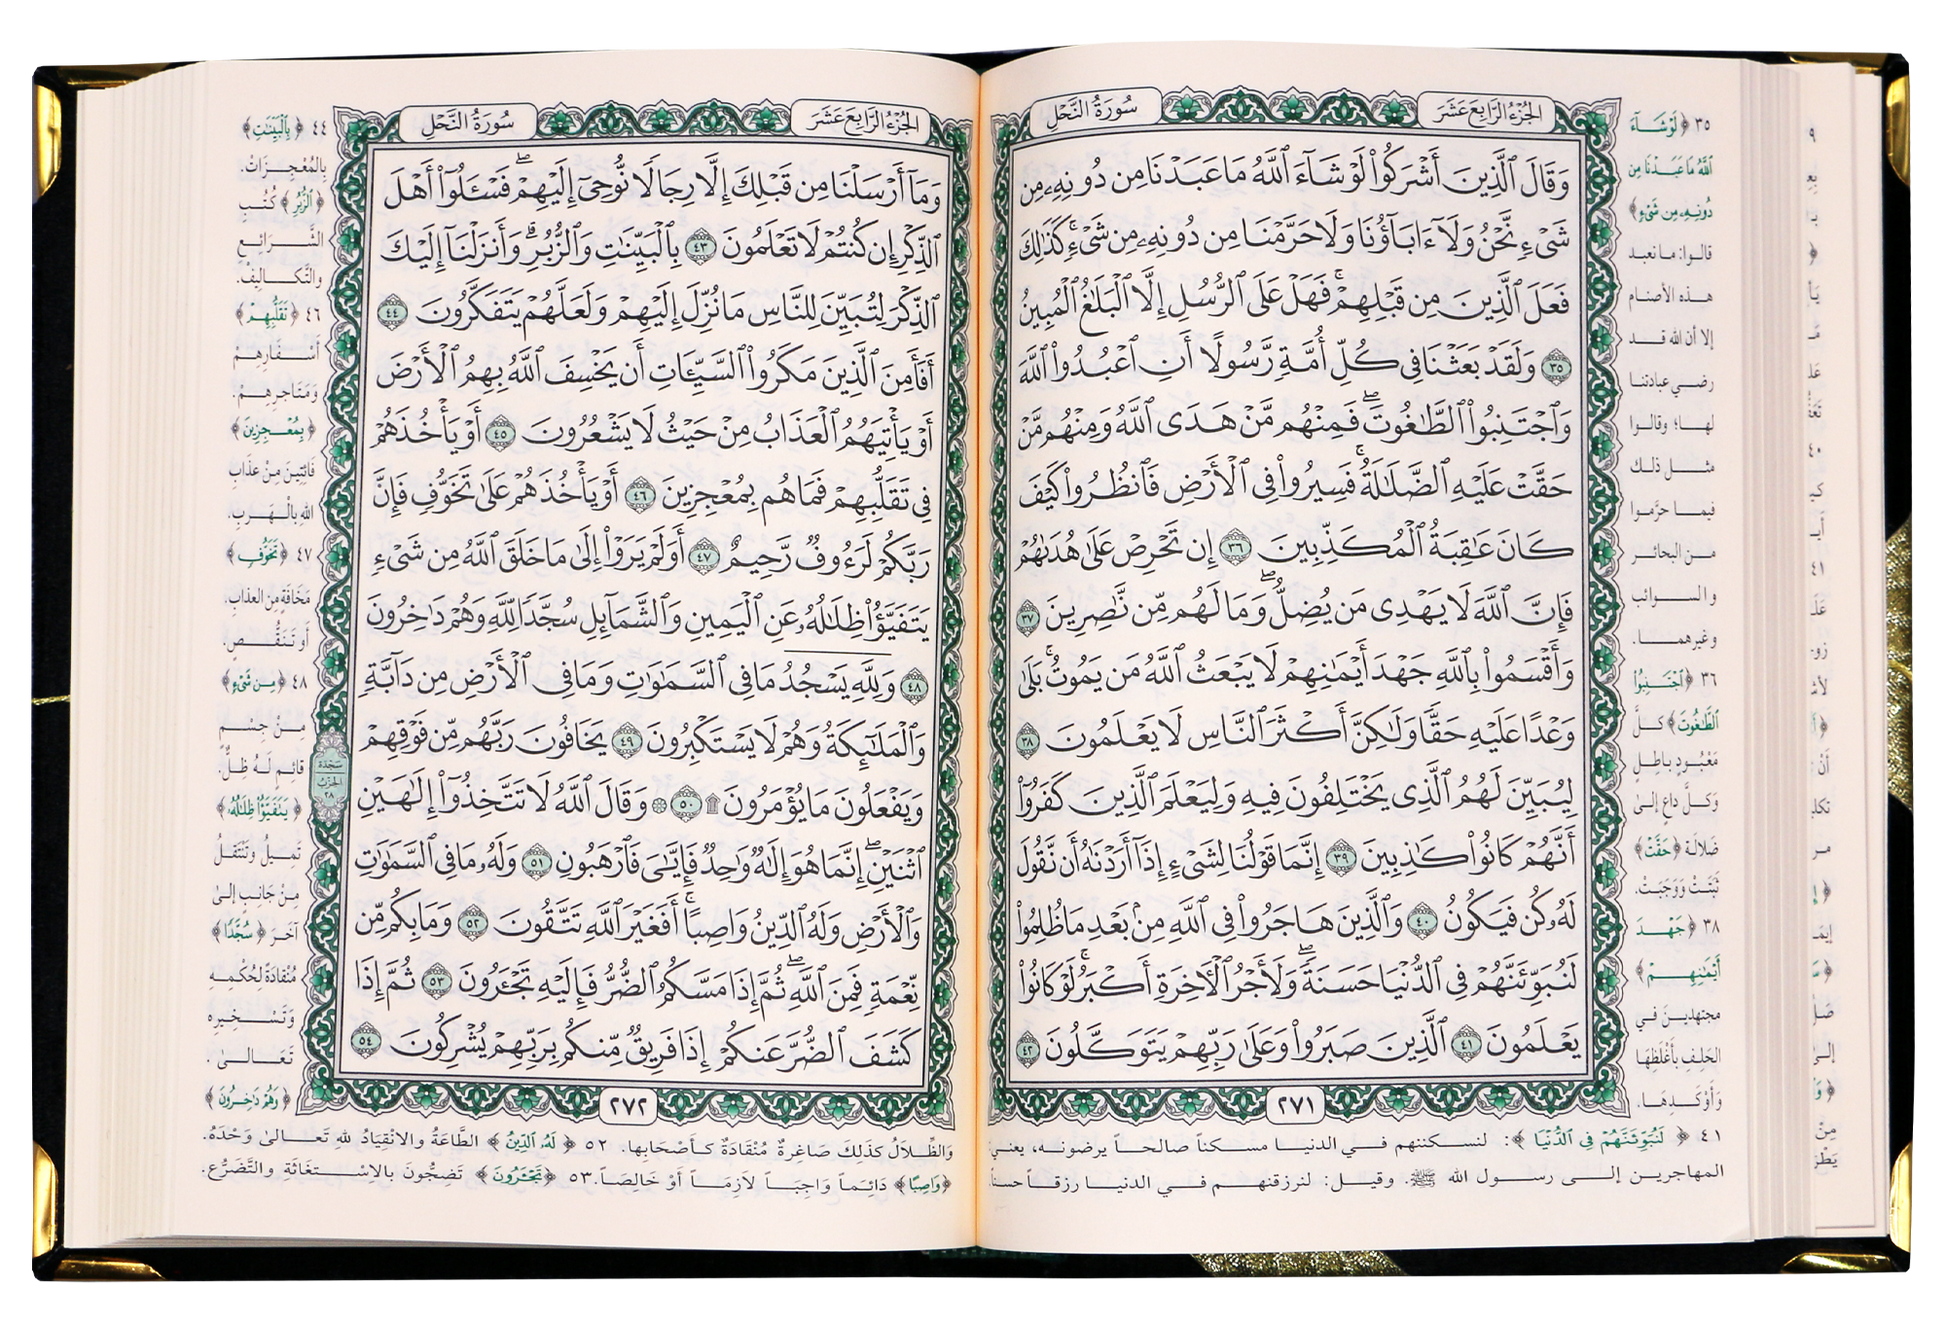 الجُزْءُ الرَّابِعَ عَشَرَ
سُورَةُ النَّحْلِ
وَقَالَ ٱلَّذِينَ أَشْرَكُوا۟ لَوْ شَآءَ ٱللَّهُ مَا عَبَدْنَا مِن دُونِهِۦ مِن
شَىْءٍ نَّحْنُ وَلَآ ءَابَآؤُنَا وَلَا حَرَّمْنَا مِن دُونِهِۦ مِن شَىْءٍۚ كَذَٰلِكَ
فَعَلَ ٱلَّذِينَ مِن قَبْلِهِمْۚ فَهَلْ عَلَى ٱلرُّسُلِ إِلَّا ٱلْبَلَٰغُ ٱلْمُبِينُ
٣٥ وَلَقَدْ بَعَثْنَا فِى كُلِّ أُمَّةٍ رَّسُولًا أَنِ ٱعْبُدُوا۟ ٱللَّهَ
وَٱجْتَنِبُوا۟ ٱلطَّٰغُوتَۖ فَمِنْهُم مَّنْ هَدَى ٱللَّهُ وَمِنْهُم مَّنْ
حَقَّتْ عَلَيْهِ ٱلضَّلَٰلَةُۚ فَسِيرُوا۟ فِى ٱلْأَرْضِ فَٱنظُرُوا۟ كَيْفَ
كَانَ عَٰقِبَةُ ٱلْمُكَذِّبِينَ ٣٦ إِن تَحْرِصْ عَلَىٰ هُدَىٰهُمْ
فَإِنَّ ٱللَّهَ لَا يَهْدِى مَن يُضِلُّۖ وَمَا لَهُم مِّن نَّٰصِرِينَ ٣٧
وَأَقْسَمُوا۟ بِٱللَّهِ جَهْدَ أَيْمَٰنِهِمْ لَا يَبْعَثُ ٱللَّهُ مَن يَمُوتُۚ بَلَىٰ
وَعْدًا عَلَيْهِ حَقًّا وَلَٰكِنَّ أَكْثَرَ ٱلنَّاسِ لَا يَعْلَمُونَ ٣٨
لِيُبَيِّنَ لَهُمُ ٱلَّذِى يَخْتَلِفُونَ فِيهِ وَلِيَعْلَمَ ٱلَّذِينَ كَفَرُوٓا۟
أَنَّهُمْ كَانُوا۟ كَٰذِبِينَ ٣٩ إِنَّمَا قَوْلُنَا لِشَىْءٍ إِذَآ أَرَدْنَٰهُ أَن نَّقُولَ
لَهُۥ كُن فَيَكُونُ ٤٠ وَٱلَّذِينَ هَاجَرُوا۟ فِى ٱللَّهِ مِنۢ بَعْدِ مَا ظُلِمُوا۟
لَنُبَوِّئَنَّهُمْ فِى ٱلدُّنْيَا حَسَنَةًۖ وَلَأَجْرُ ٱلْءَاخِرَةِ أَكْبَرُۚ لَوْ كَانُوا۟
يَعْلَمُونَ ٤١ ٱلَّذِينَ صَبَرُوا۟ وَعَلَىٰ رَبِّهِمْ يَتَوَكَّلُونَ ٤٢
٢٧١
٣٥ ﴿لَوْ شَآءَ
ٱللَّهُ مَا عَبَدْنَا مِن
دُونِهِۦ مِن شَىْءٍ﴾
قالوا: ما نعبد
هذه الأصنام
إلا أن الله قد
رضي عبادتنا
لها؛ وقالوا
مثل ذلك
فيما حرَّموا
من البحائر
والسوائب
وغيرهما.
٣٦ ﴿ٱجْتَنِبُوا۟
ٱلطَّٰغُوتَ﴾ كلَّ
مَعْبُودٍ باطِلٍ
وَكلَّ داعٍ إلىٰ
ضَلالَة ﴿حَقَّتْ﴾
ثَبَتَتْ وَوَجَبَتْ.
٣٨ ﴿جَهْدَ
أَيْمَٰنِهِمْ﴾
مجتهدين في
الحَلِفِ بأَغْلَظِهَا
وَأَوْكَدِهَا.
٤١ ﴿لَنُبَوِّئَنَّهُمْ فِى ٱلدُّنْيَا﴾: لنسكننهم في الدنيا مسكناً صالحاً يرضونه، يعني
المهاجرين إلى رسول الله ﷺ. وقيل: لنرزقنهم في الدنيا رزقاً حسناً
الجُزْءُ الرَّابِعَ عَشَرَ
سُورَةُ النَّحْلِ
وَمَآ أَرْسَلْنَا مِن قَبْلِكَ إِلَّا رِجَالًا نُّوحِىٓ إِلَيْهِمْۖ فَسْـَٔلُوٓا۟ أَهْلَ
ٱلذِّكْرِ إِن كُنتُمْ لَا تَعْلَمُونَ ٤٣ بِٱلْبَيِّنَٰتِ وَٱلزُّبُرِۗ وَأَنزَلْنَآ إِلَيْكَ
ٱلذِّكْرَ لِتُبَيِّنَ لِلنَّاسِ مَا نُزِّلَ إِلَيْهِمْ وَلَعَلَّهُمْ يَتَفَكَّرُونَ ٤٤
أَفَأَمِنَ ٱلَّذِينَ مَكَرُوا۟ ٱلسَّيِّـَٔاتِ أَن يَخْسِفَ ٱللَّهُ بِهِمُ ٱلْأَرْضَ
أَوْ يَأْتِيَهُمُ ٱلْعَذَابُ مِنْ حَيْثُ لَا يَشْعُرُونَ ٤٥ أَوْ يَأْخُذَهُمْ
فِى تَقَلُّبِهِمْ فَمَا هُم بِمُعْجِزِينَ ٤٦ أَوْ يَأْخُذَهُمْ عَلَىٰ تَخَوُّفٍ فَإِنَّ
رَبَّكُمْ لَرَءُوفٌ رَّحِيمٌ ٤٧ أَوَلَمْ يَرَوْا۟ إِلَىٰ مَا خَلَقَ ٱللَّهُ مِن شَىْءٍ
يَتَفَيَّؤُا۟ ظِلَٰلُهُۥ عَنِ ٱلْيَمِينِ وَٱلشَّمَآئِلِ سُجَّدًا لِّلَّهِ وَهُمْ دَٰخِرُونَ
٤٨ وَلِلَّهِ يَسْجُدُ مَا فِى ٱلسَّمَٰوَٰتِ وَمَا فِى ٱلْأَرْضِ مِن دَآبَّةٍ
وَٱلْمَلَٰٓئِكَةُ وَهُمْ لَا يَسْتَكْبِرُونَ ٤٩ يَخَافُونَ رَبَّهُم مِّن فَوْقِهِمْ
وَيَفْعَلُونَ مَا يُؤْمَرُونَ ۩ ٥٠ ۞ وَقَالَ ٱللَّهُ لَا تَتَّخِذُوٓا۟ إِلَٰهَيْنِ
ٱثْنَيْنِۖ إِنَّمَا هُوَ إِلَٰهٌ وَٰحِدٌ فَإِيَّٰىَ فَٱرْهَبُونِ ٥١ وَلَهُۥ مَا فِى ٱلسَّمَٰوَٰتِ
وَٱلْأَرْضِ وَلَهُ ٱلدِّينُ وَاصِبًاۚ أَفَغَيْرَ ٱللَّهِ تَتَّقُونَ ٥٢ وَمَا بِكُم مِّن
نِّعْمَةٍ فَمِنَ ٱللَّهِۖ ثُمَّ إِذَا مَسَّكُمُ ٱلضُّرُّ فَإِلَيْهِ تَجْـَٔرُونَ ٥٣ ثُمَّ إِذَا
كَشَفَ ٱلضُّرَّ عَنكُمْ إِذَا فَرِيقٌ مِّنكُم بِرَبِّهِمْ يُشْرِكُونَ ٥٤
٢٧٢
سَجْدَة
الحِزْب
٢٨
٤٤ ﴿بِٱلْبَيِّنَٰتِ﴾
بِالمُعْجِزَاتْ.
﴿ٱلزُّبُرِ﴾ كُتُبِ
الشَّرَائِعِ
والتَّكالِيْف.
٤٦ ﴿تَقَلُّبِهِمْ﴾
أَسْفَارِهِمْ
وَمَتَاجِرِهِمْ.
﴿بِمُعْجِزِينَ﴾
فَائِتِينَ مِنْ عَذَابِ
اللهِ بِالْهَرَبِ.
٤٧ ﴿تَخَوُّفٍ﴾
مَخَافَةٍ مِنَ العذابِ.
أَو تَنَقُّصٍ.
٤٨ ﴿مِن شَىْءٍ﴾
مِنْ جِسْمٍ
قائمٍ لَهُ ظِلٌّ.
﴿يَتَفَيَّؤُا۟ ظِلَٰلُهُۥ﴾
تَمِيلُ وَتَنْتَقِلُ
مِنْ جَانِبٍ إلىٰ
آخَرَ ﴿سُجَّدًا﴾
مُنْقادَةً لِحُكْمِهِ
وَتَسْخِيرِهِ
تَعَالىٰ.
﴿وَهُمْ دَٰخِرُونَ﴾
وَالظِّلالُ كَذلِكَ صَاغِرةٌ مُنْقَادَةٌ كَأَصْحَابِها. ٥٢ ﴿لَهُ ٱلدِّينُ﴾ الطَّاعَةُ والانْقِيَادُ للهِ تَعالىٰ وَحْدَهُ.
﴿وَاصِبًا﴾ دَائِماً وَاجِبَاً لاَزِمَاً أَوْ خَالِصَاً. ٥٣ ﴿تَجْـَٔرُونَ﴾ تَضِجُّونَ بالاسْتِغَاثَةِ والتَّضَرُّعِ.